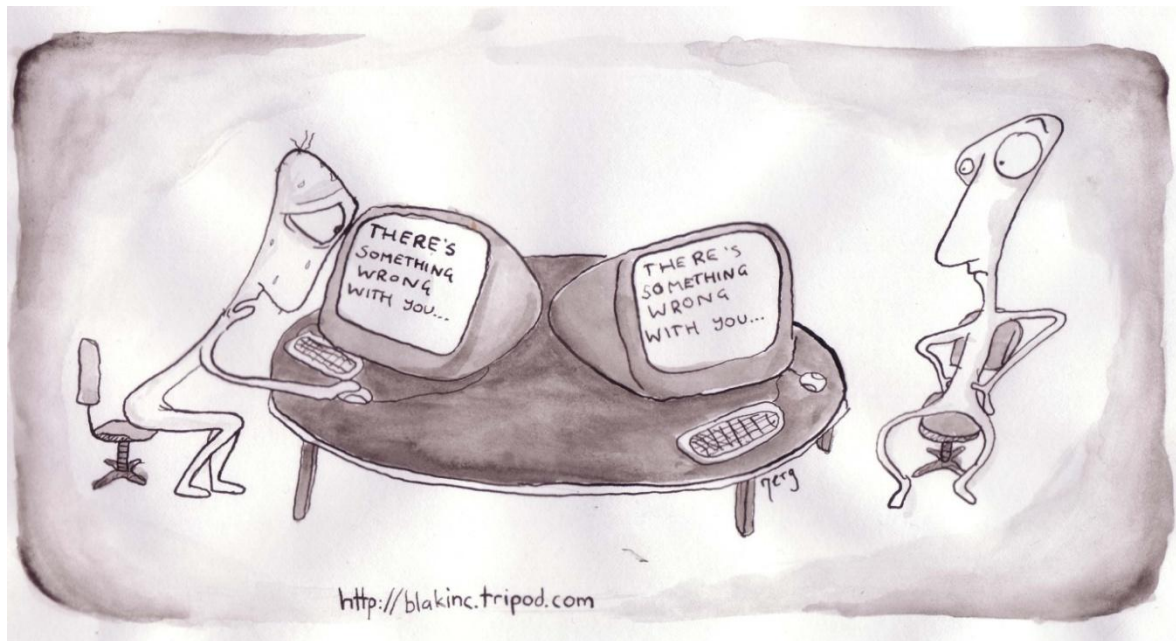 THERE'S
SOMETHING
WRONG
WITH YOU...
THERE'S
SOMETHING
WRONG
WITH YOU...
nerg
http://blakinc.tripod.com